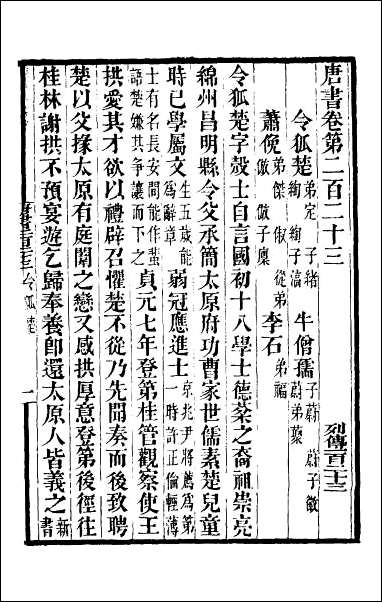 唐書卷第二百二十三　列傳百二十三
令狐楚 弟定 子緒 綯 綯子滈　牛僧孺 子蔚 蔚子徽 蔚弟藂
蕭俛 弟傑 俶 從弟倣 倣子廩　李石 弟福
令狐楚字殼士自言國初十八學士德棻之裔祖崇亮
綿州昌明縣令父承簡太原府功曹家世儒素楚兒童
時已學屬文 生五歲能爲辭章 弱冠應進士 京兆尹將薦爲第一時許正倫輕薄
士有名長安間能作蜚語楚嫌其爭讓而下之 貞元七年登第桂管觀察使王
拱愛其才欲以禮辟召懼楚不從乃先聞奏而後致聘
楚以父掾太原有庭闈之戀又感拱厚意登第後徑往
桂林謝拱不預宴遊乞歸奉養卽還太原人皆義之 新書
令狐楚　一